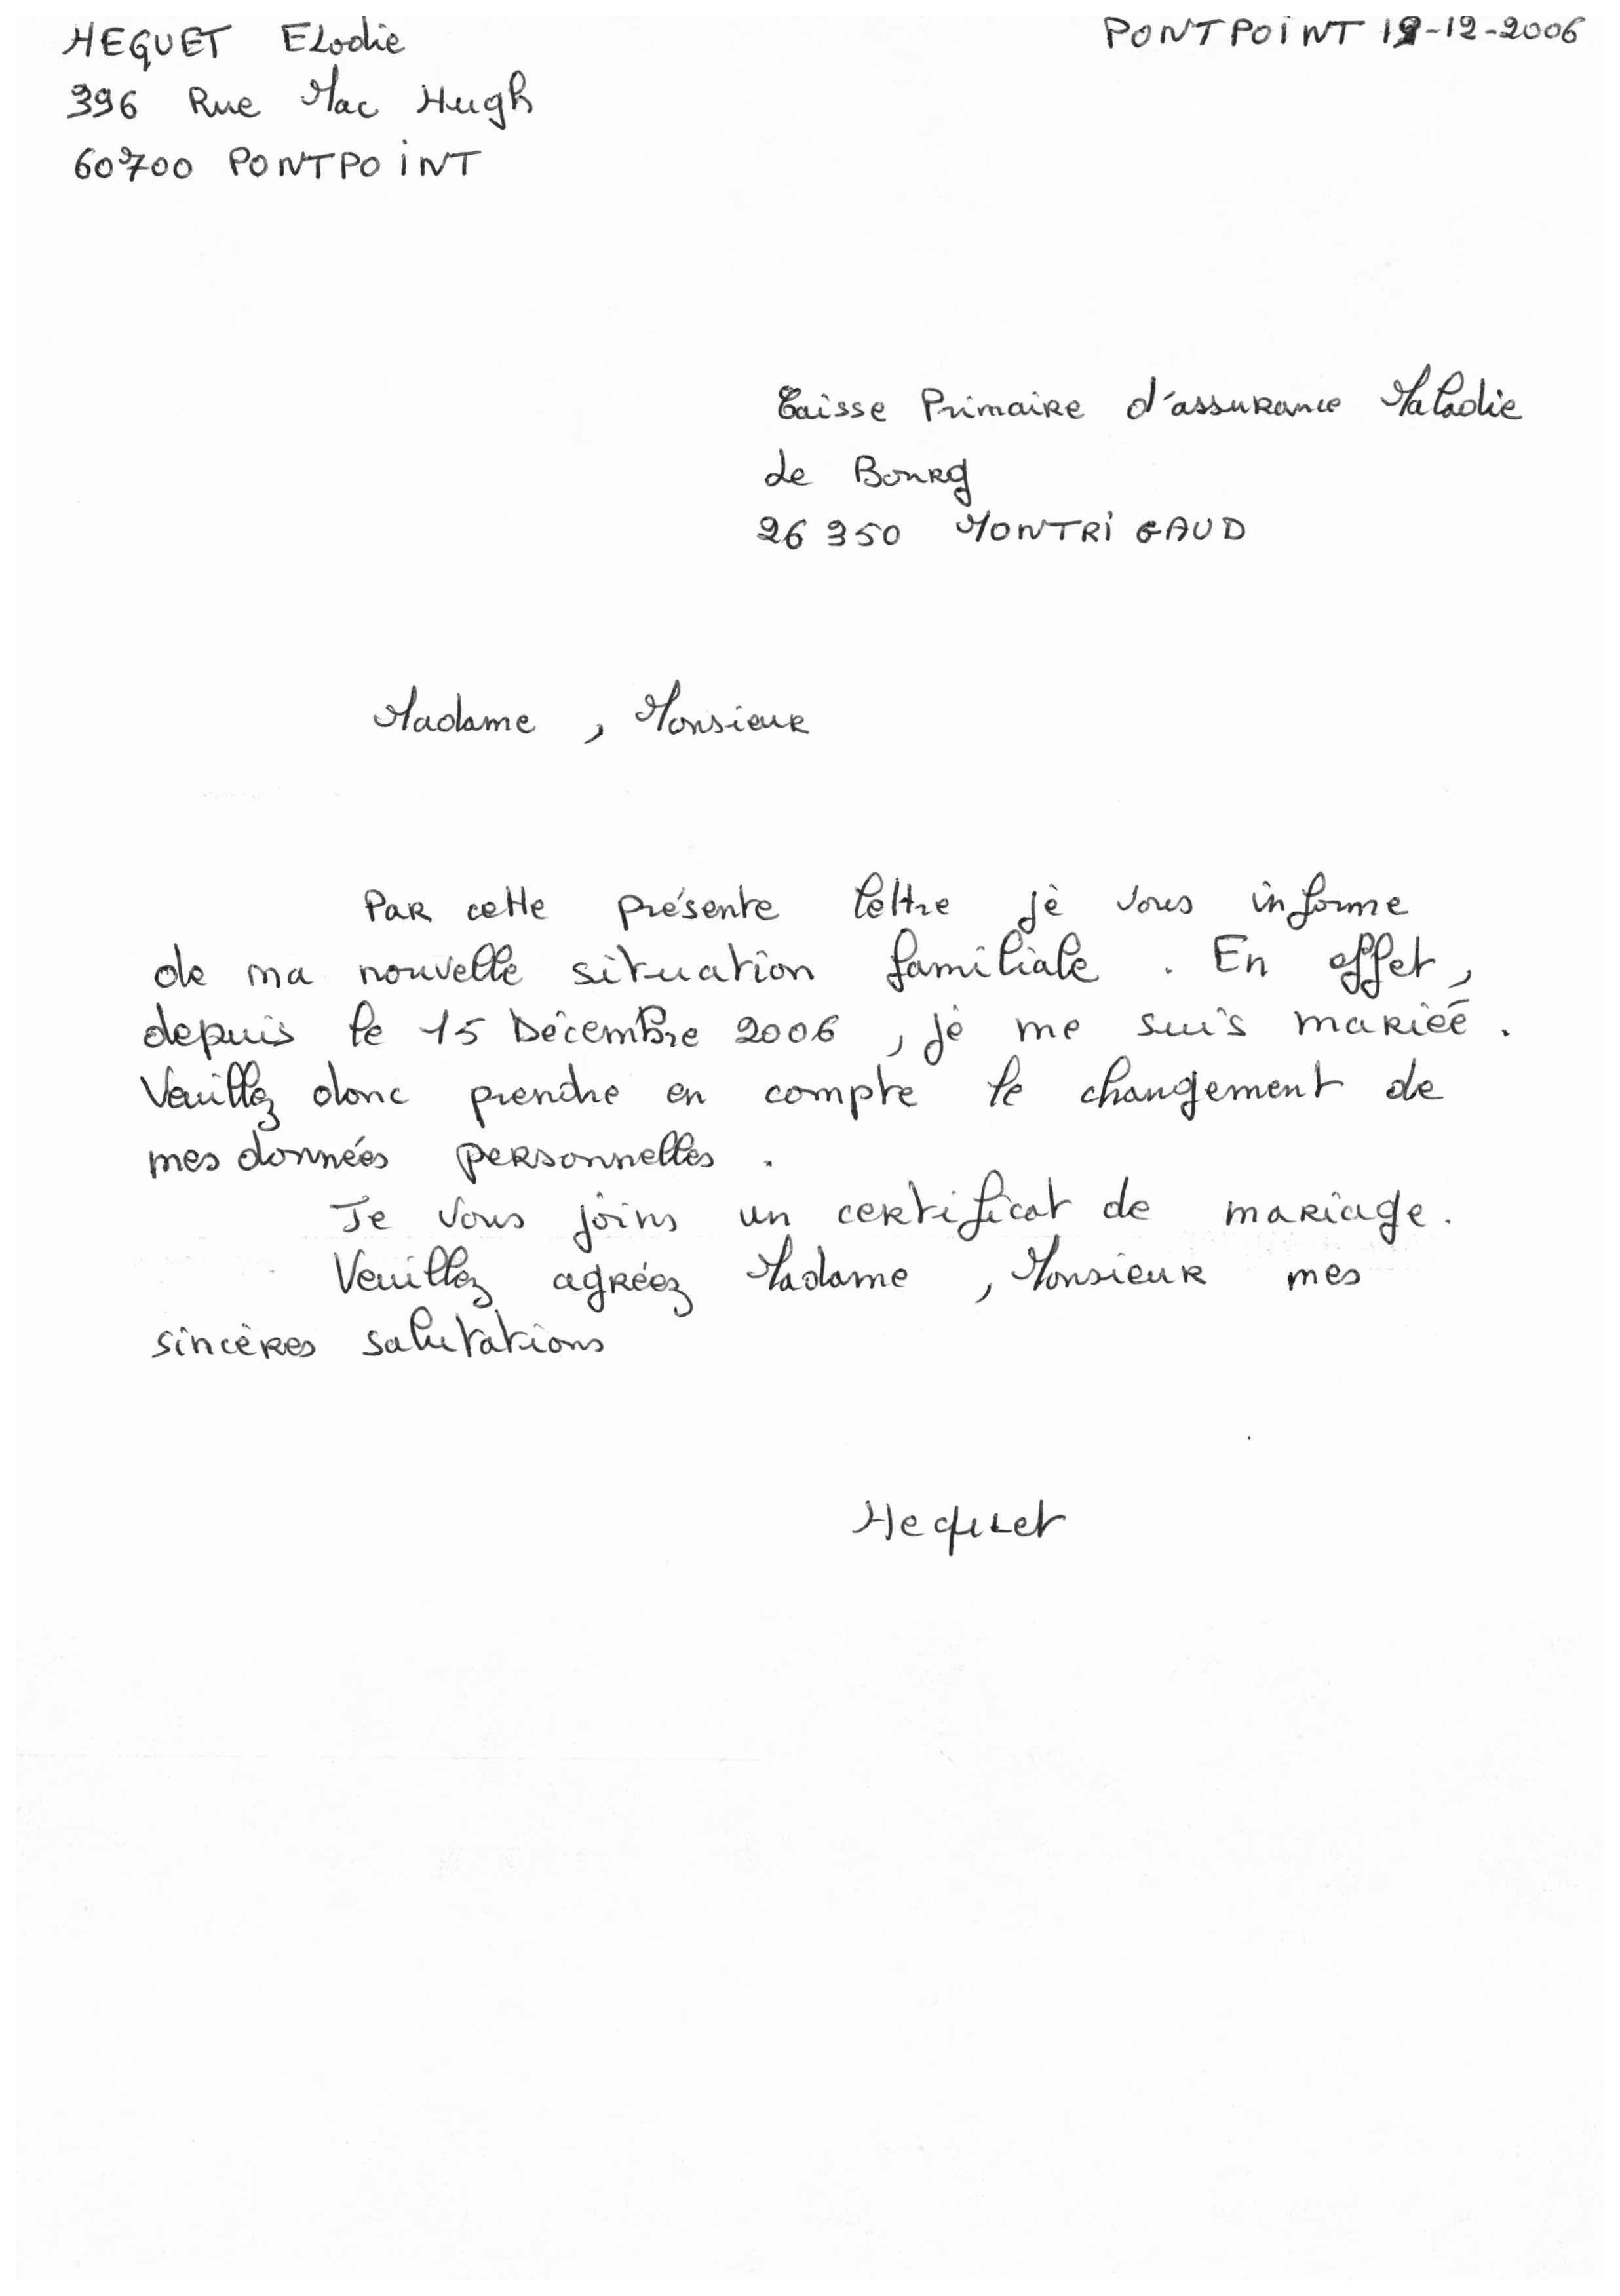 HEQUET Elodie
PONTPOINT 18-12-2006
396 Rue Mac Hugh
60700 PONTPOINT
Caisse Primaire d'assurance Maladie
Le Bourg
26 350 MONTRIGAUD
Madame, Monsieur
Par cette présente lettre je vous informe
de ma nouvelle situation familiale. En effet,
depuis le 15 Décembre 2006, je me suis mariée.
Veuillez donc prendre en compte le changement de
mes données personnelles.
Je vous joins un certificat de mariage.
Veuillez agréez Madame, Monsieur mes
sincères salutations
Hequet